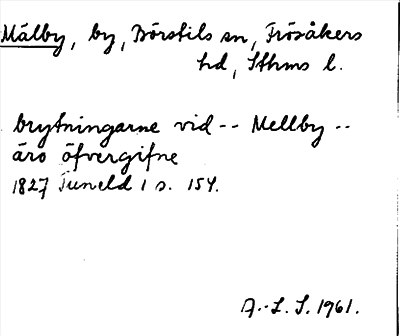 Mälby, by, Börstils sn, Frösåkers
hd, Sthms l.
brytningarne vid -- Mellby --
äro öfvergifne
1827 Tuneld 1 s. 154.
A.-L. S. 1961.